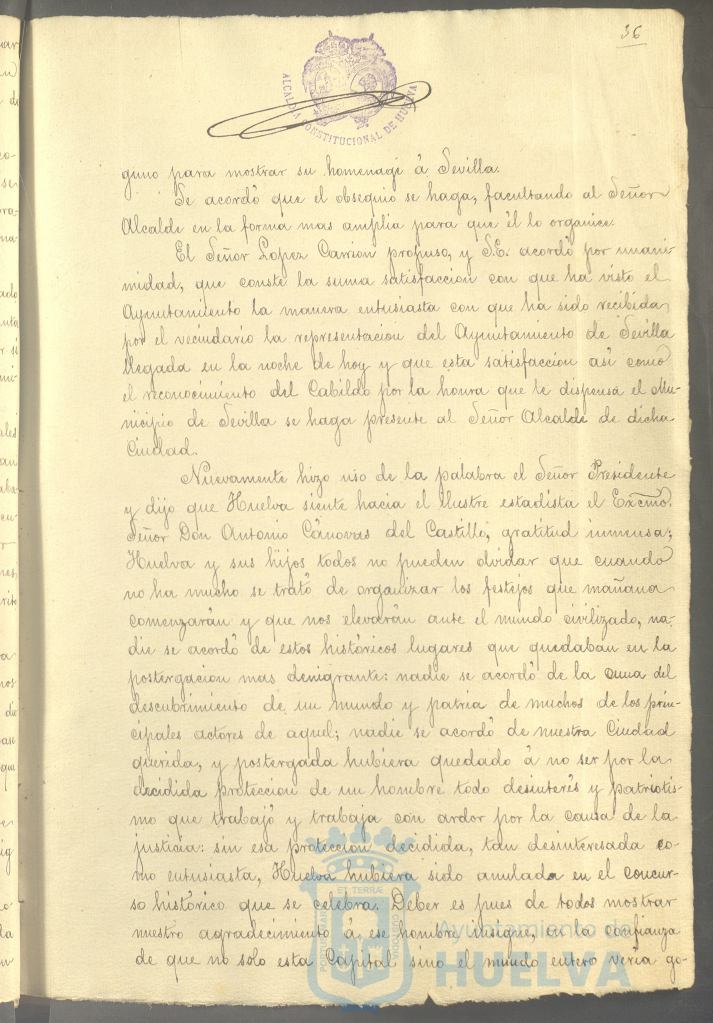 36
ALCALDÍA CONSTITUCIONAL DE HUELVA
guno para mostrar su homenage á Sevilla.
Se acordó que el obsequio se haga, facultando al Señor
Alcalde en la forma mas amplia para que él lo organice.
El Señor Lopez Carrion propuso, y S.E. acordó por unani-
midad, que conste la suma satisfaccion con que ha visto el
Ayuntamiento la manera entusiasta con que ha sido recibida
por el vecindario la representacion del Ayuntamiento de Sevilla
llegada en la noche de hoy y que esta satisfaccion asi como
el reconocimiento del Cabildo por la honra que le dispensa el Mu-
nicipio de Sevilla se haga presente al Señor Alcalde de dicha
Ciudad.
Nuevamente hizo uso de la palabra el Señor Presidente
y dijo que Huelva siente hacia el ilustre estadista el Excmo.
Señor Don Antonio Cánovas del Castillo, gratitud inmensa;
Huelva y sus hijos todos no pueden olvidar que cuando
no ha mucho se trató de organizar los festejos que mañana
comenzarán y que nos elevarán ante el mundo civilizado, na-
die se acordó de estos históricos lugares que quedaban en la
postergacion mas denigrante: nadie se acordó de la cuna del
descubrimiento de un mundo y patria de muchos de los prin-
cipales actores de aquel; nadie se acordó de nuestra Ciudad
querida, y postergada hubiera quedado á no ser por la
decidida proteccion de un hombre todo desinterés y patriotis-
mo que trabajó y trabaja con ardor por la causa de la
justicia: sin esa proteccion decidida, tan desinteresada co-
mo entusiasta, Huelva hubiera sido anulada en el concur-
so histórico que se celebra. Deber es pues de todos mostrar
nuestro agradecimiento á ese hombre insigne, en la confianza
de que no solo esta Capital sino el mundo entero veria go-
Ayuntamiento de
HUELVA